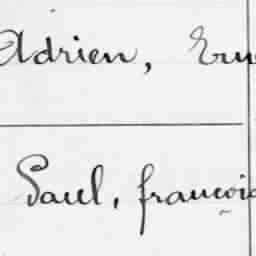 Adrien, Ern
Paul, françois